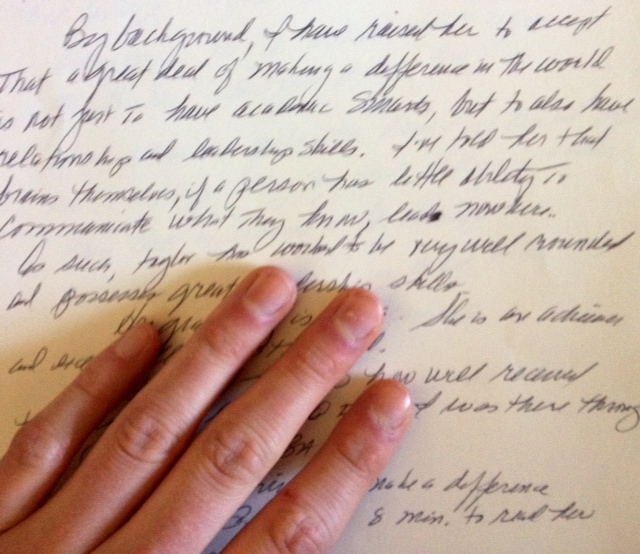 By background, I have raised her to accept
That a great deal of making a difference in the world
is not just to have academic smarts, but to also have
relationship and leadership skills. I've told her that
brains themselves, if a person has little ability to
communicate what they know, leads nowhere.
As such, Taylor has worked to be very well rounded
and possesses great skills.
is She is an achiever
and
how well received
I was there
make a difference
8 min. to read her